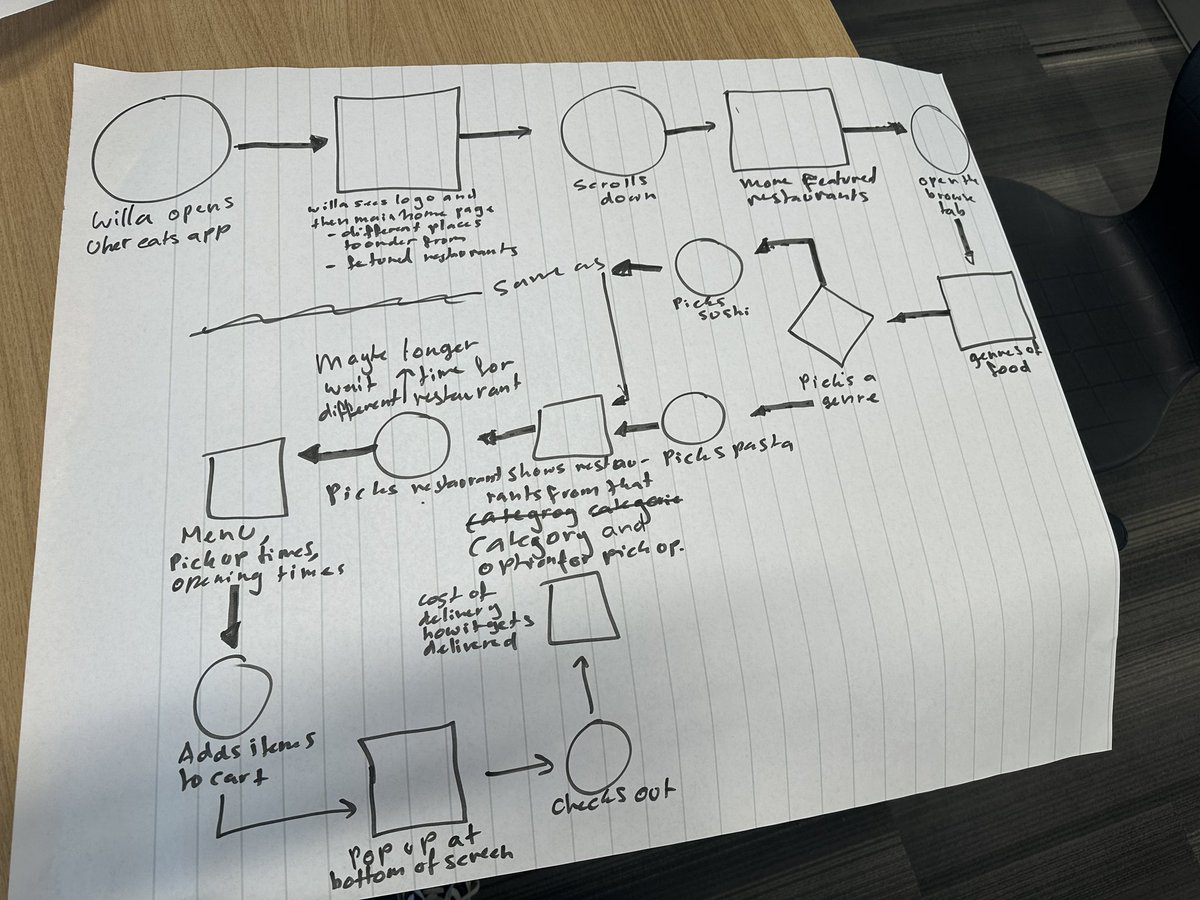 Willa opens
Uber eats app
willa sees logo and
then main home page
- different places
to order from
- fetured restaurants
Scrolls
down
more featured
restaurants
open the
browse
tab
genres of
food
Pick's a
genre
Picks
sushi
Same as
Picks pasta
shows restau-
rants from that
categroy categorie
Category and
option for pick up.
Picks restaurant
Maybe longer
wait time for
different restaurant
Menu,
Pick up times,
opening times
Adds items
to cart
Pop up at
bottom of screen
Checks out
cost of
delivery
how it gets
delivered